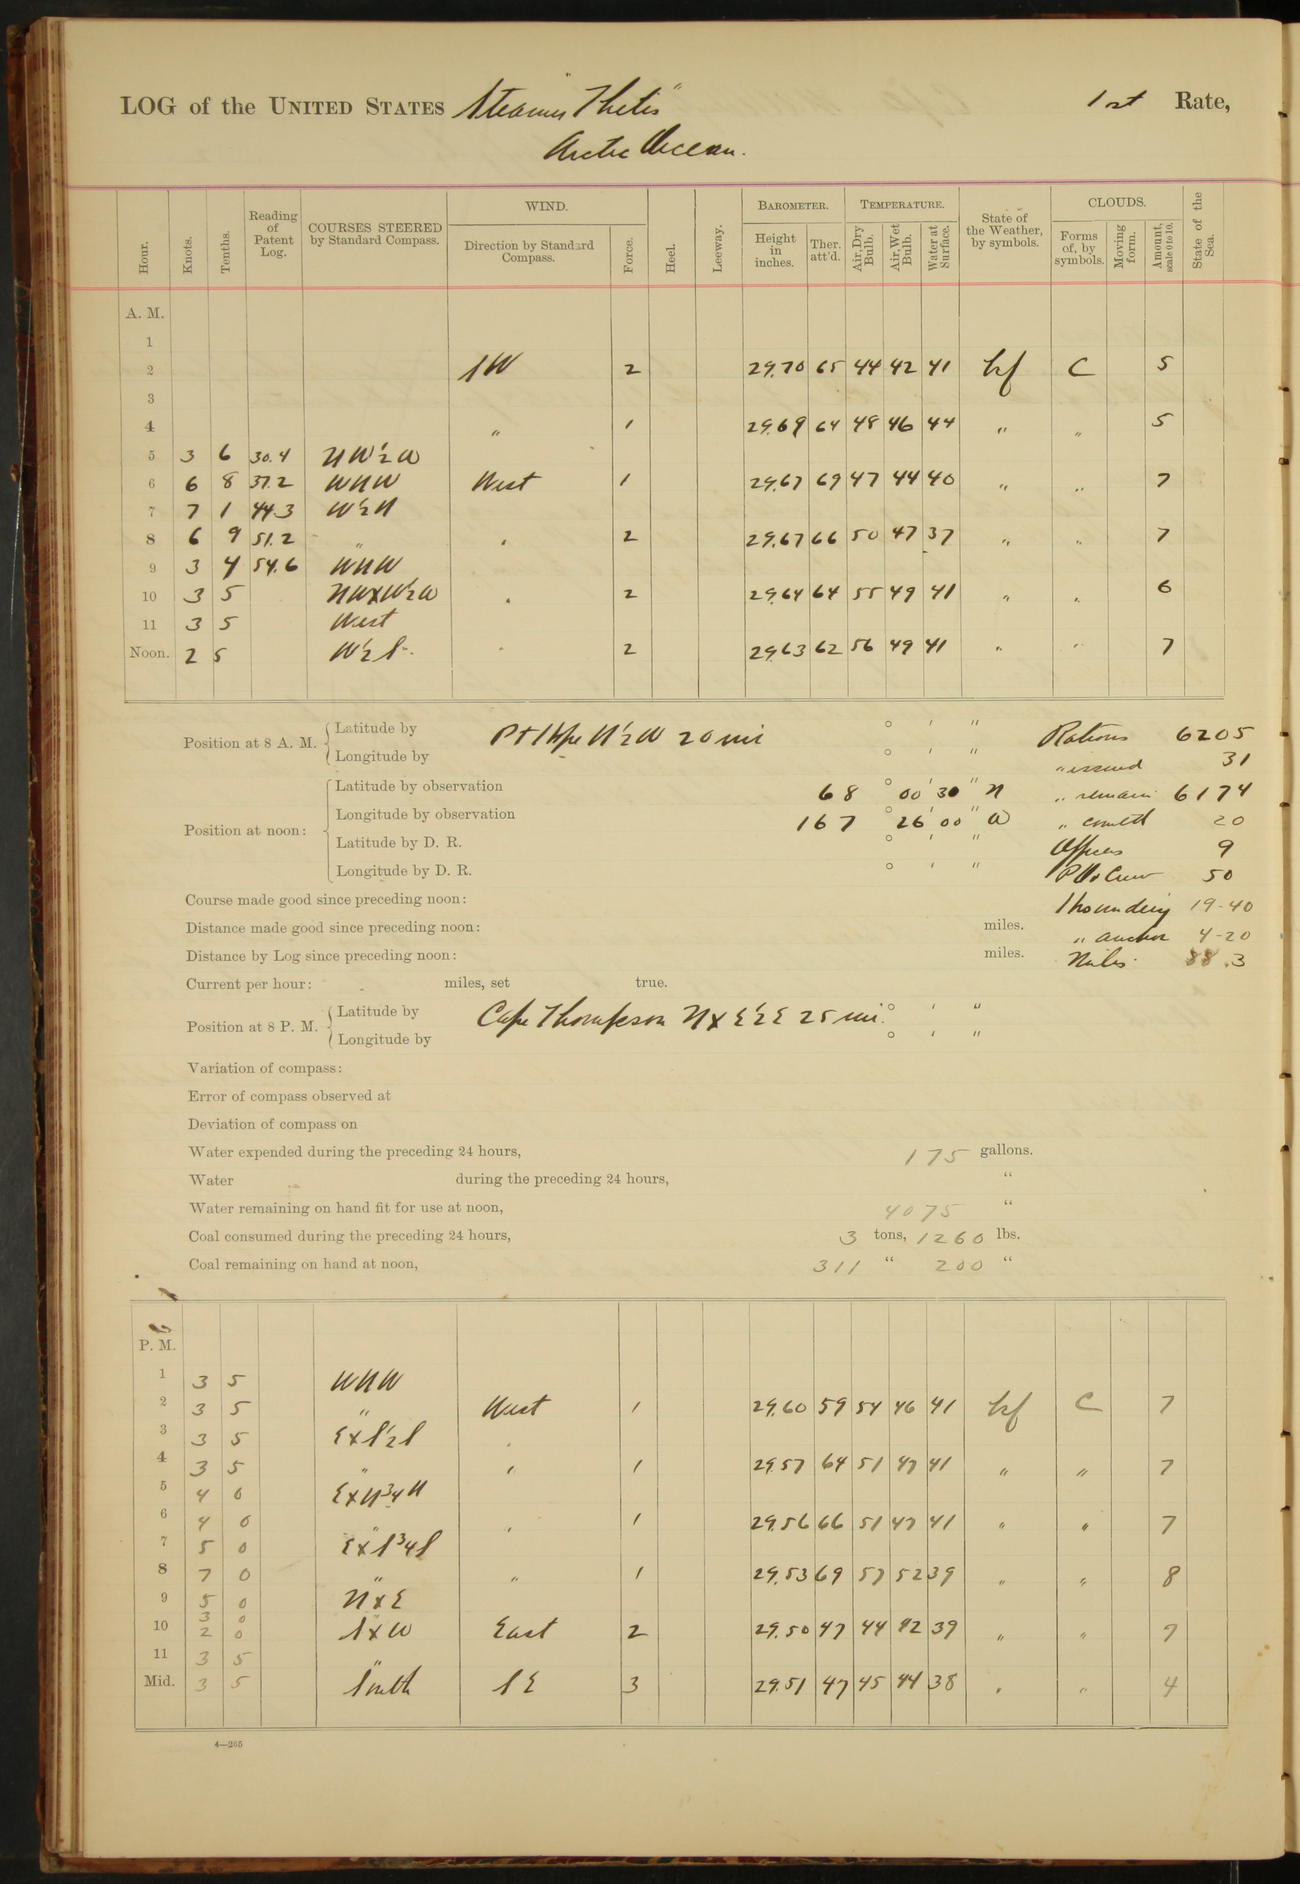 LOG of the UNITED STATES Steamer "Thetis" 1st Rate,
Arctic Ocean.
Hour. Knots. Tenths. Reading of Patent Log. COURSES STEERED by Standard Compass. WIND. Direction by Standard Compass. Force. Heel. Leeway. BAROMETER. Height in inches. Ther. att'd. TEMPERATURE. Air, Dry Bulb. Air, Wet Bulb. Water at Surface. State of the Weather, by symbols. CLOUDS. Forms of, by symbols. Moving form. Amount, scale 0 to 10. State of the Sea.
A. M.
1
2 SW 2 29.70 65 44 42 41 C 5
3
4 " 1 29.69 64 48 46 44 " " 5
5 3 6 30.4 NW½W
6 6 8 37.2 WNW West 1 29.67 69 47 44 40 " " 7
7 7 1 44.3 W½N
8 6 9 51.2 " " 2 29.67 66 50 47 37 " " 7
9 3 4 54.6 WNW
10 3 5 NWxW½W " 2 29.64 64 55 49 41 " " 6
11 3 5 West
Noon. 2 5 W½S " 2 29.63 62 56 49 41 " " 7
Position at 8 A. M. Latitude by Pt Hope N½W 20 mi ° ' " Rations 6205
Longitude by ° ' " " issued 31
Position at noon: Latitude by observation 68 ° 00 ' 30 " N " remain 6174
Longitude by observation 167 ° 26 ' 00 " W " comtd 20
Latitude by D. R. ° ' " Officers 9
Longitude by D. R. ° ' " Crew 50
Course made good since preceding noon: 19-40
Distance made good since preceding noon: miles. " anchor 4-20
Distance by Log since preceding noon: miles. Miles 88.3
Current per hour: miles, set true.
Position at 8 P. M. Latitude by Cape Thompson NxE½E 25 mi. ° ' "
Longitude by ° ' "
Variation of compass:
Error of compass observed at
Deviation of compass on
Water expended during the preceding 24 hours, 175 gallons.
Water during the preceding 24 hours, "
Water remaining on hand fit for use at noon, 4075 "
Coal consumed during the preceding 24 hours, 3 tons, 1260 lbs.
Coal remaining on hand at noon, 311 " 200 "
P. M.
1 3 5 WNW
2 3 5 " West 1 29.60 59 54 46 41 C 7
3 3 5 ExS½S
4 3 5 " " 1 29.57 64 51 47 41 " " 7
5 4 0 ExN¾N
6 4 0 " " 1 29.56 66 51 47 41 " " 7
7 5 0 ExS¾S
8 7 0 " " 1 29.53 69 57 52 39 " " 8
9 5 0 NxE
10 3 0 2 0 SxW East 2 29.50 47 44 42 39 " " 7
11 3 5 "
Mid. 3 5 South SE 3 29.51 47 45 44 38 " " 4
4—265